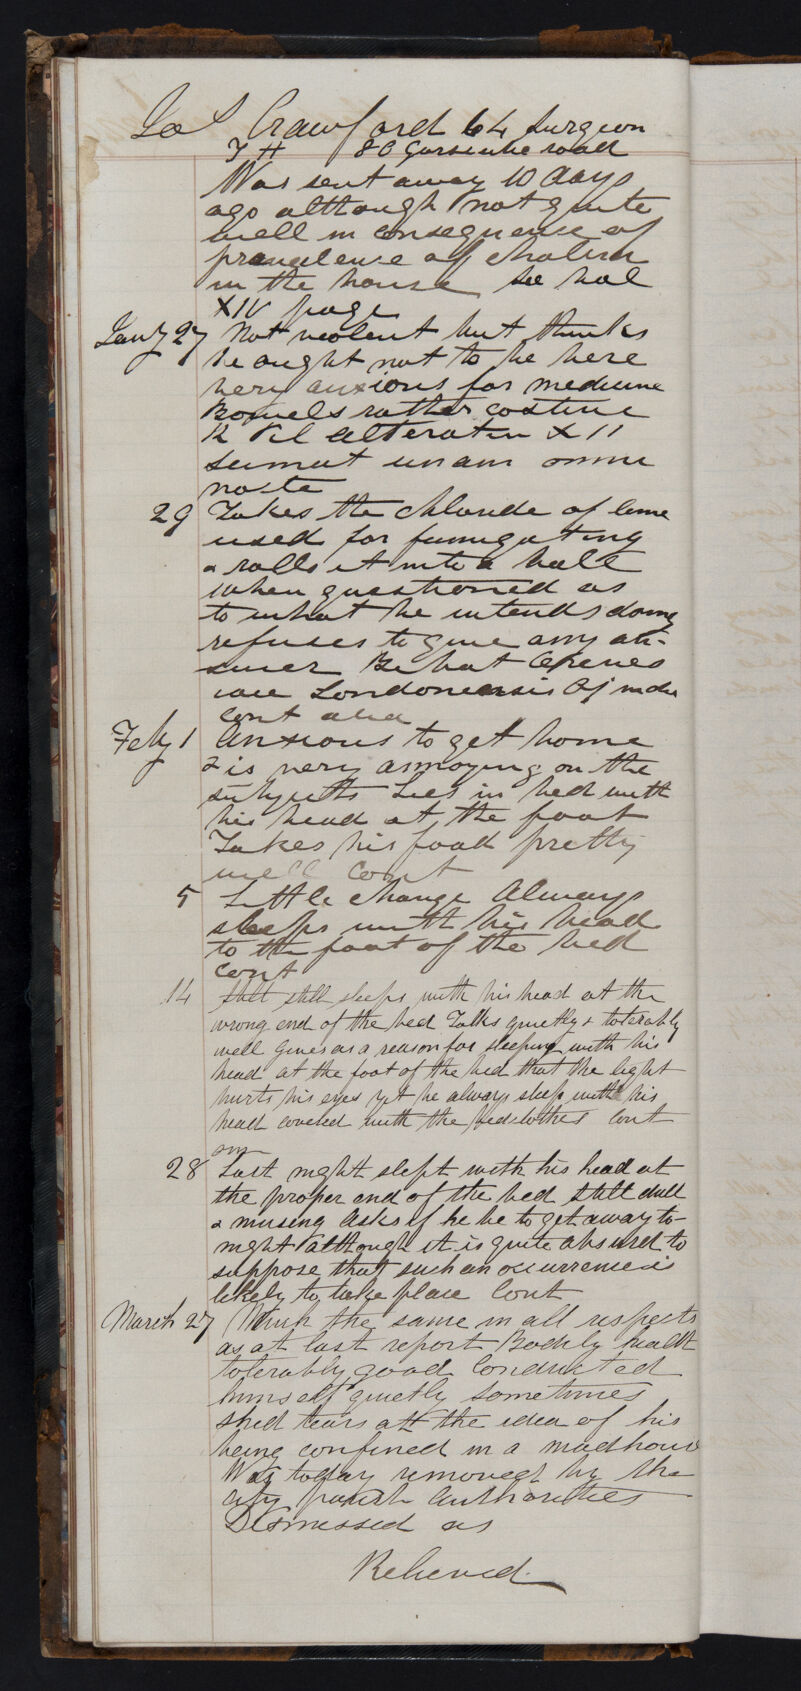 Jas Crawford 64 Surgeon
T H 80 road
Was sent away 10 days
ago although not quite
well in consequence of
prevalence of cholera
in the house See Vol
XIV page
Jany 27 Not violent but thinks
he ought not to be here
very anxious for medicine
Bowels rather costive
R Pil alterativ X11
Sumat unam omni
nocte
29 Takes the chloride of lime
used for fumigating
& rolls it into a ball
when questioned as
to what he intends doing
refuses to give any an-
swer
Londonensis
cont
Feby 1 Anxious to get home
& is very annoying on the
subjects Lies in bed with
his head at the foot
Takes his food pretty
well Cont
5 Little change Always
sleeps with his head
to the foot of the bed
Cont
14 Still still sleeps with his head at the
wrong end of the bed Talks quietly & tolerably
well Gives as a reason for sleeping with his
head at the foot of the bed that the light
hurts his eyes yet he always sleeps with his
head covered with the bedclothes Cont
om
28 Last night slept with his head at
the proper end of the bed Still dull
& musing Asks if he be to get away to-
night although it is quite absurd to
suppose that such an occurrence is
likely to take place Cont
March 27 Much the same in all respects
as at last report Bodily health
tolerably good Conducted
himself quietly Sometimes
shed tears att the idea of his
being confined in a madhouse
Was today removed by the
city parish authorities
Dismissed as
Relieved.